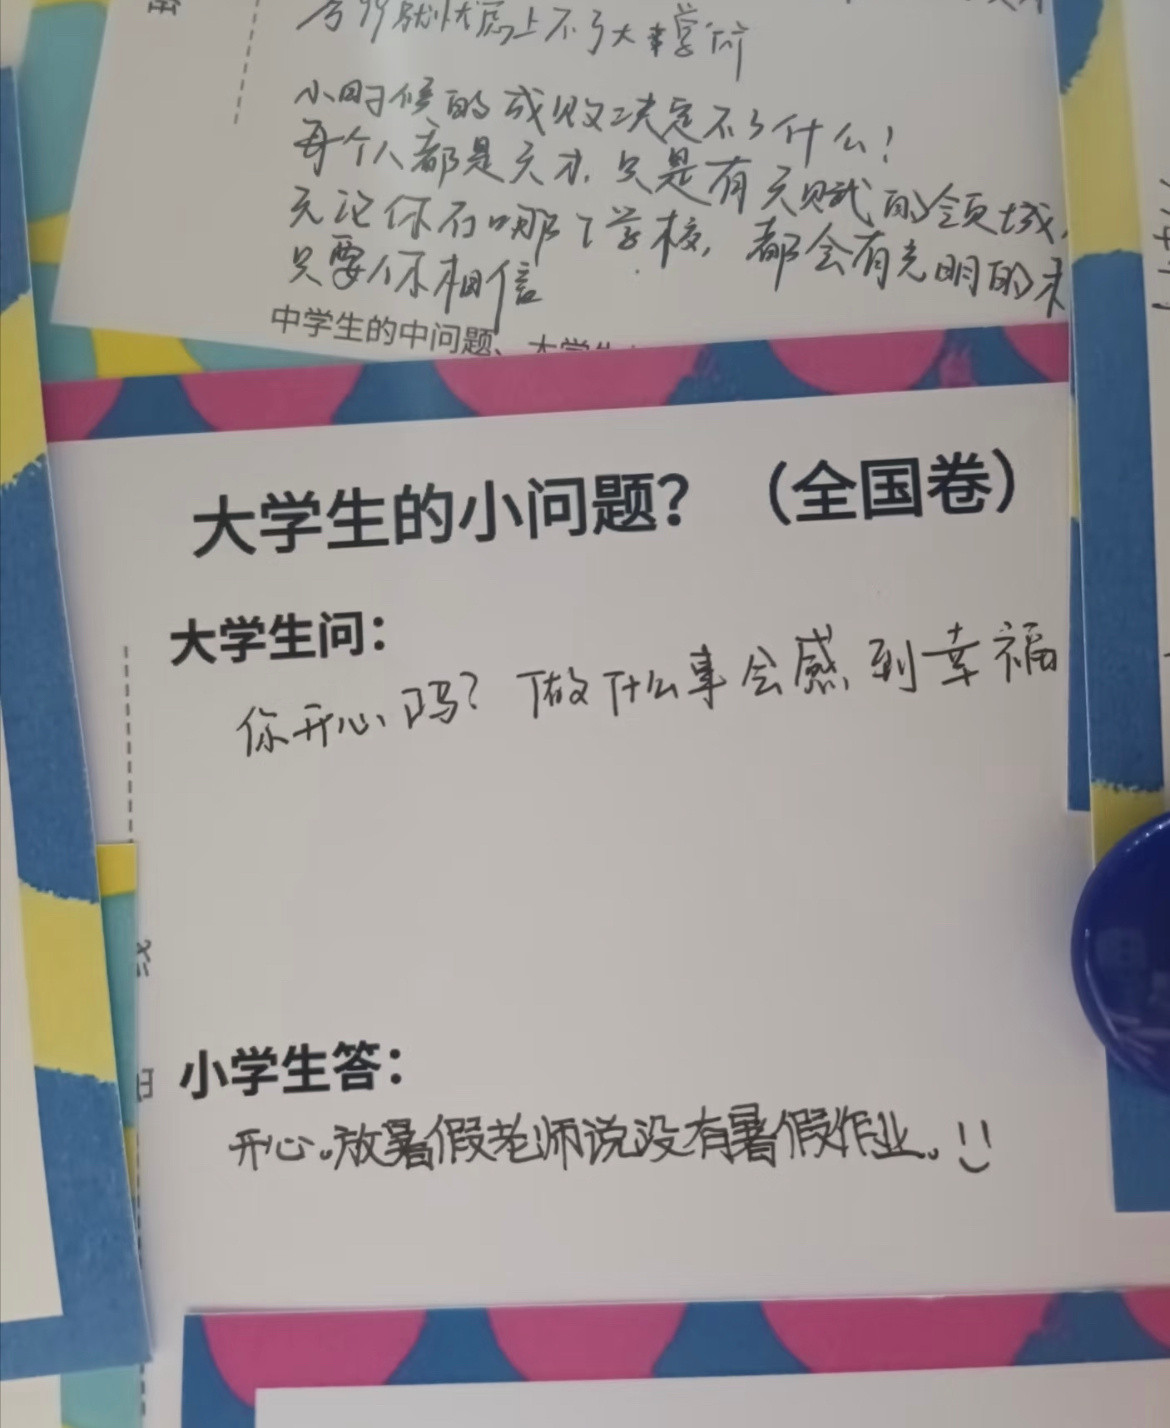 上不了大学
小时候的成败决定不了什么！
每个人都是天才，只是有天赋的领域，
无论你在哪个学校，都会有光明的未
只要你相信
中学生的中问题、大学生
大学生的小问题？（全国卷）
大学生问：
你开心吗？做什么事会感到幸福
小学生答：
开心。放暑假老师说没有暑假作业。